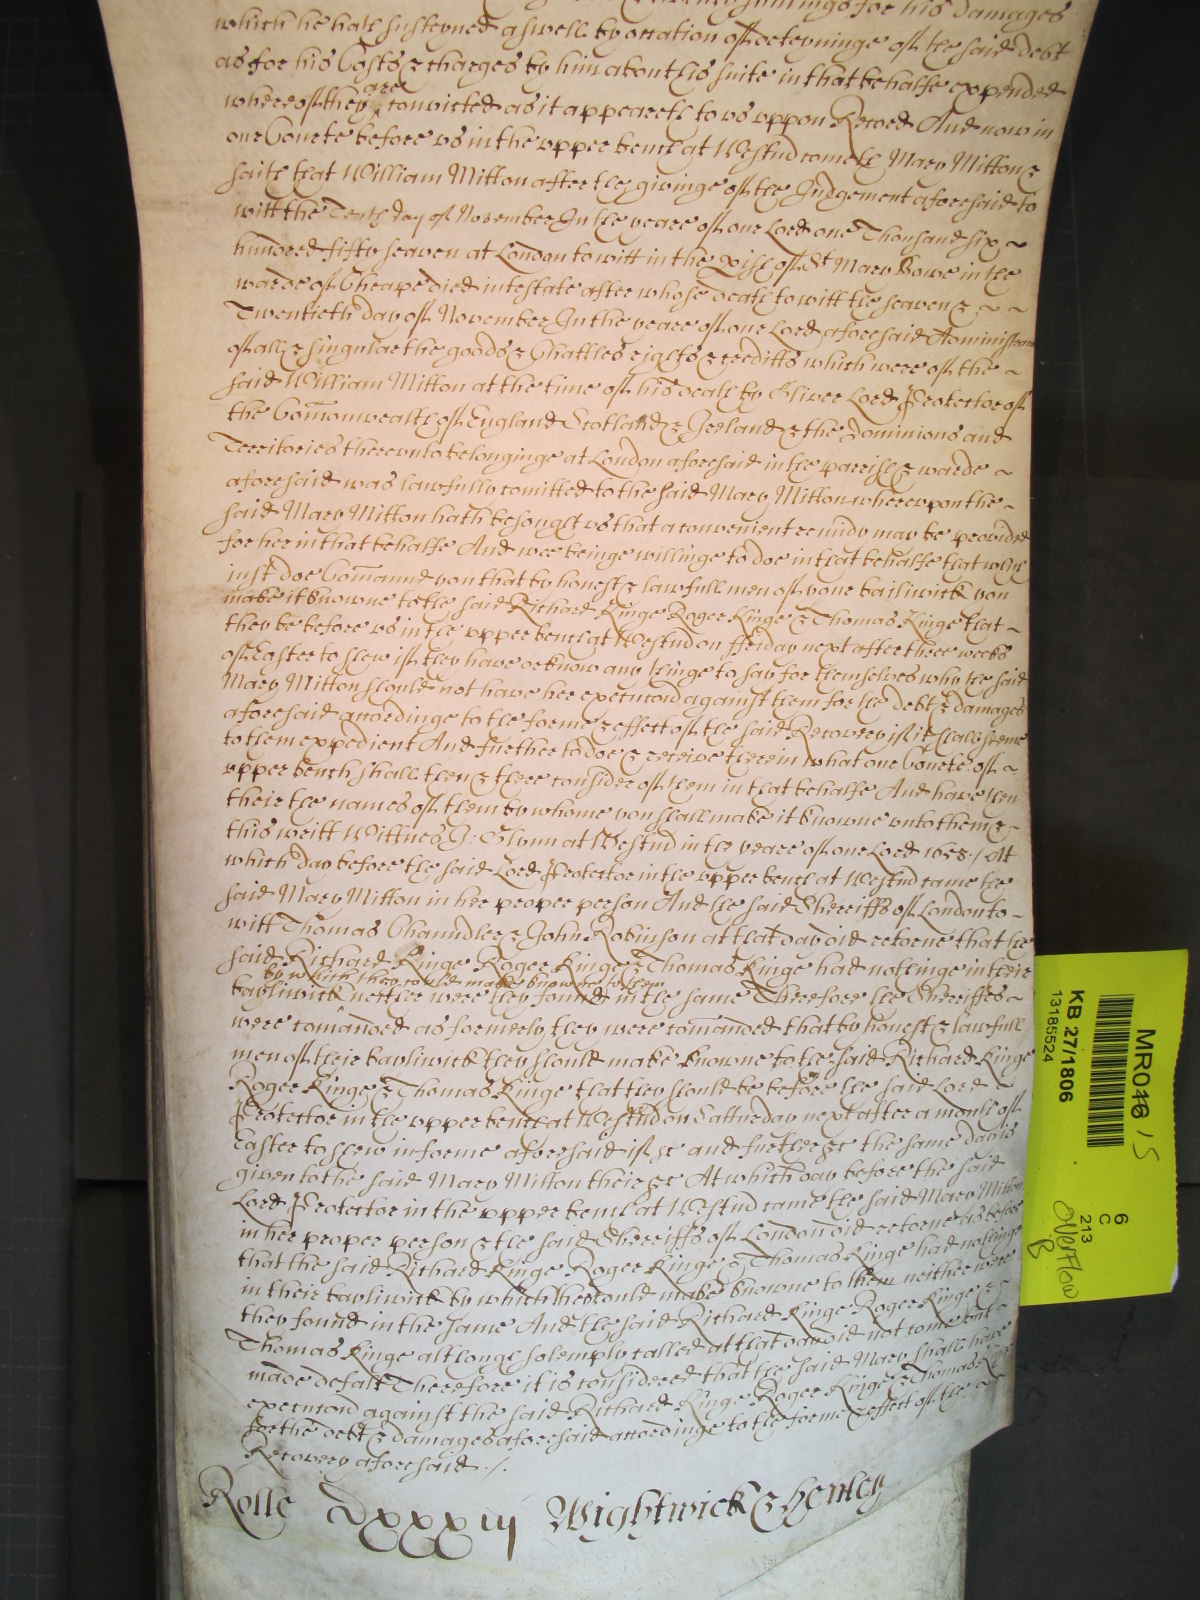 shillings for his damages
which he hath susteyned aswell by occation of deteyninge of the said debt
as for his Costs & charges by him about his suite in that behalfe expended
are
whereof they convicted as it appeareth to us uppon Record And now in
our Courte before us in the upper bench at Westm̃ cometh Mary Mitton &
saith that William Mitton after the givinge of the Judgement aforesaid to
witt the Tenth day of November In the yeare of our Lord one Thousand six ~
hundred fifty seaven at London to witt in the p̲ish of St Mary Bowe in the
warde of Cheape died intestate after whose death to witt the seaven & ~ ~
Twentieth day of November In the yeare of our Lord aforesaid Administracõn
of all & singular the goods & Chattles rights & creditts which were of the ~
said William Mitton at the time of his death by Oliver Lord Protector of
the Com̃onwealth of England Scotland & Ireland & the Dominions and
Territories thereunto belonginge at London aforesaid in the parrish & warde ~
aforesaid was lawfully com̃itted to the said Mary Mitton whereupon the ~
said Mary Mitton hath besought us that a convenient remidy may be provided
for her in that behalfe And wee beinge willinge to doe in that behalfe that wch is
just doe Com̃aund you that by honest & lawfull men of your bailiwick you
make it knowne to the said Richard Kinge Roger Kinge & Thomas Kinge that ~
they be before us in the upper bench at Westm̃ on ffriday next after three weeks
of Easter to shew if they have or know any thinge to say for themselves why the said
Mary Mitton should not have her execucõn against them for the debt & damages
aforesaid accordinge to the forme & effect of the said Recovery if it shall seeme
to them expedient And further to doe & receive therein what our Courte of ~
upper bench shall then & there consider of them in that behalfe And have then
their the names of them by whome you shall make it knowne unto them & ~
this writt Wittnes J: Glynn at Westm̃ in the yeare of our Lord 1658 ./ At
which day before the said Lord Protector in the upper bench at Westm̃ came the
said Mary Mitton in her proper person And the said Sherriffs of London to ~
witt Thomas Chaundler & John Robinson at that day did retorne that the
said Richard Kinge Roger Kinge & Thomas Kinge had nothinge in their
by which they could make knowne to them
bayliwick neither were they found in the same Therefore the Sherriffes ~
were com̃anded as formerly they were com̃anded that by honest & lawfull
men of their bayliwick they should make knowne to the said Richard Kinge
Roger Kinge & Thomas Kinge that they should be before the said Lord ~
Protector in the upper bench at Westm̃ on Satturday next after a month of
Easter to shew in forme aforesaid if &c and further &c the same day is
given to the said Mary Mitton their &c At which day before the said
Lord Protector in the upper bench at Westm̃ came the said Mary Mitton
in her proper person & the said Sherriffs of London did retorne as before
that the said Richard Kinge Roger Kinge & Thomas Kinge had nothinge
in their bayliwick by which they could make knowne to them neither were
they found in the same And the said Richard Kinge Roger Kinge & ~
Thomas Kinge although solemply called at that day did not come but ~
made defalt Therefore it is considered that the said Mary shall have
execucõn against the said Richard Kinge Roger Kinge & Thomas Kinge
for the debt & damages aforesaid accordinge to the forme & effect of the ~
Recovery aforesaid ./.
Rolle Dxxxiij Wightwick & Henley
MR046 15
KB 27/1806
13185524
6
C
213
Overflow
B